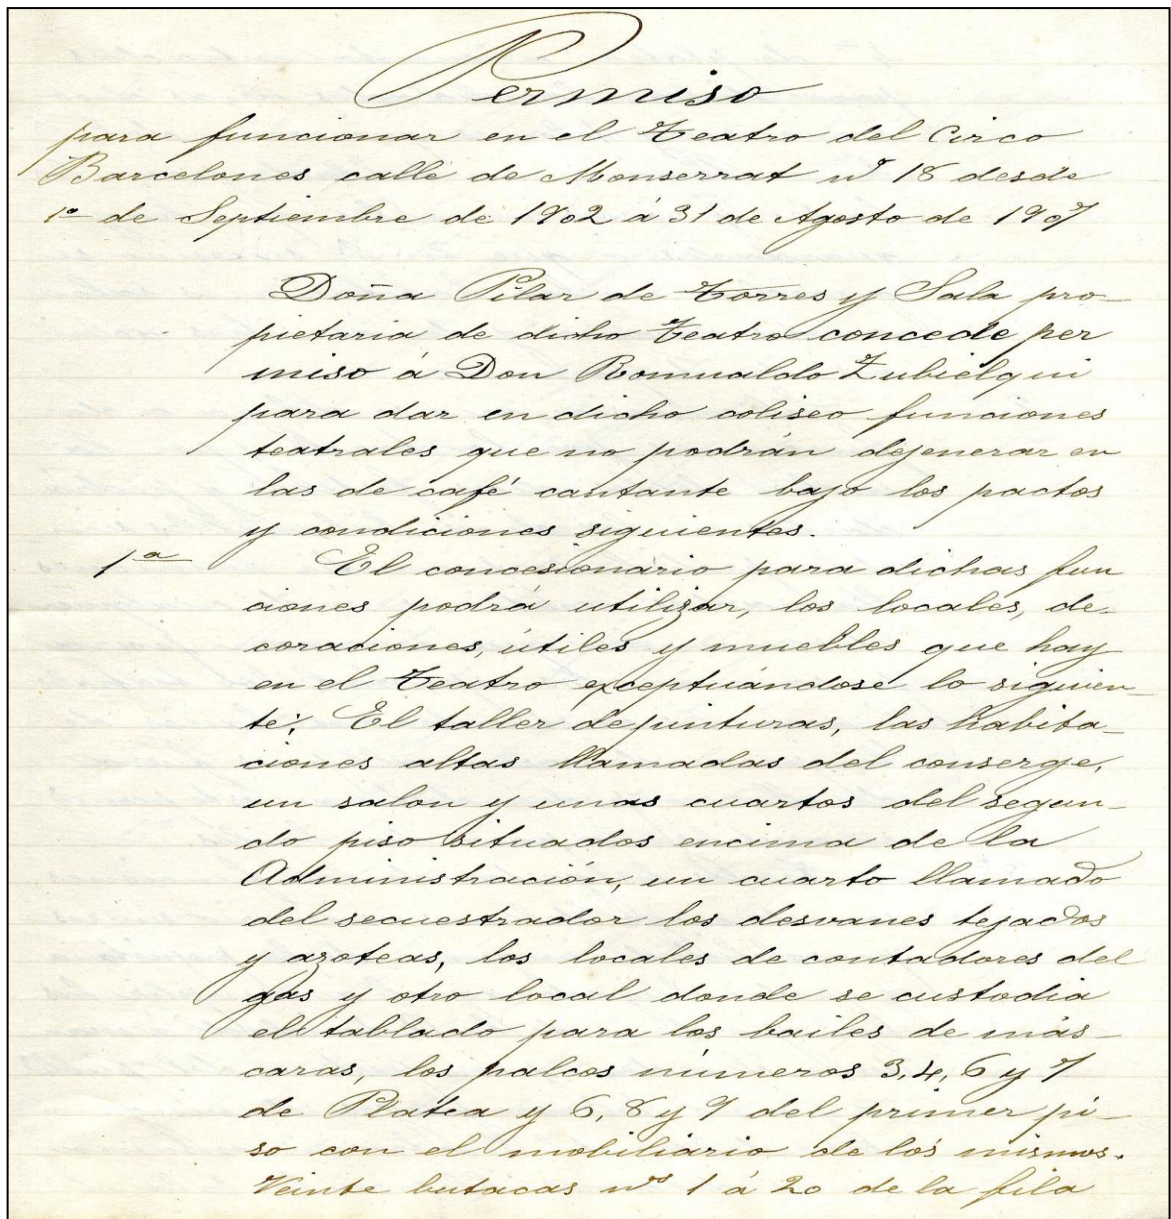 Permiso
para funcionar en el Teatro del Circo
Barcelones calle de Monserrat nº 18 desde
1º de Septiembre de 1902 á 31 de Agosto de 1907
Doña Pilar de Torres y Sala pro-
pietaria de dicho Teatro concede per
miso á Don Romualdo Zubielqui
para dar en dicho coliseo funciones
teatrales que no podrán dejenerar en
las de café cantante bajo los pactos
y condiciones siguientes.
1ª El concesionário para dichas fun
ciones podrá utilizar, los locales, de-
coraciones, útiles y muebles que hay
en el Teatro exceptuándose lo siguien-
te; El taller de pinturas, las habita-
ciones altas llamadas del conserge,
un salon y unos cuartos del segun-
do piso situados encima de la
Administración, un cuarto llamado
del secuestrador los desvanes tejados
y azoteas, los locales de contadores del
gas y otro local donde se custodia
el tablado para los bailes de más-
caras, los palcos números 3, 4, 6 y 7
de Platea y 6, 8 y 9 del primer pi-
so con el mobiliario de los mismos.
Veinte butacas nos 1 á 20 de la fila